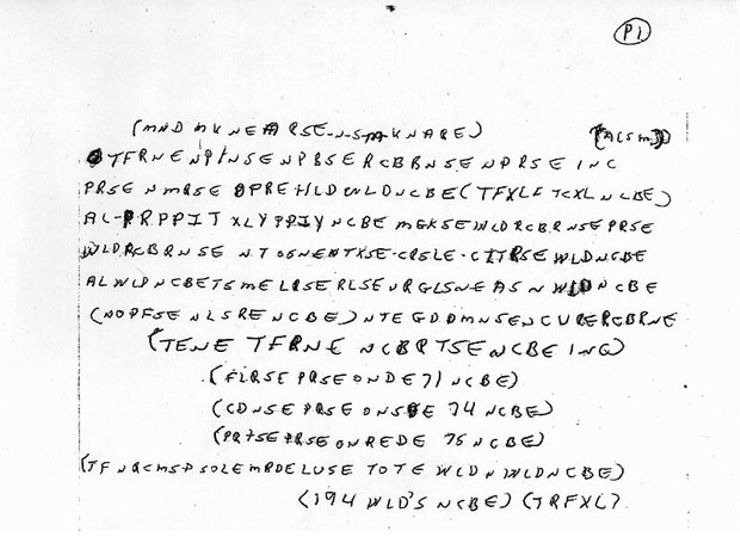 P1
(MND MKNEARSE-N-S-M-KNARE) (ACSM)
TFRNENPINSENPBSERCBBNSENPRSEINC
PRSENMRSEOPREHLDWLDNCBE(TFXLFTCXLNCBE)
AL-PRPPITXLYPPIYNCBEMGKSEWLDRCBRNSEPRSE
WLDRCBRNSENTOSNENTXSE-CRSLE-CITRSEWLDNCBE
ALWLDNCBETSMELRSERLSEURGLSNEASNWLDNCBE
(NOPFSENLSRENCBE)NTEGDDMNSENCURERCBRNE
(TENETFRNENCBRTSENCBEINC)
(FLRSEPRSEONDE71NCBE)
(CDNSEPRSEONSDE74NCBE)
(PRTSEPRSEONREDE75NCBE)
(TFNRCMSPSOLEMRDELUSETOTEWLDNWLDNCBE)
(194WLD'SNCBE)(TRFXL)